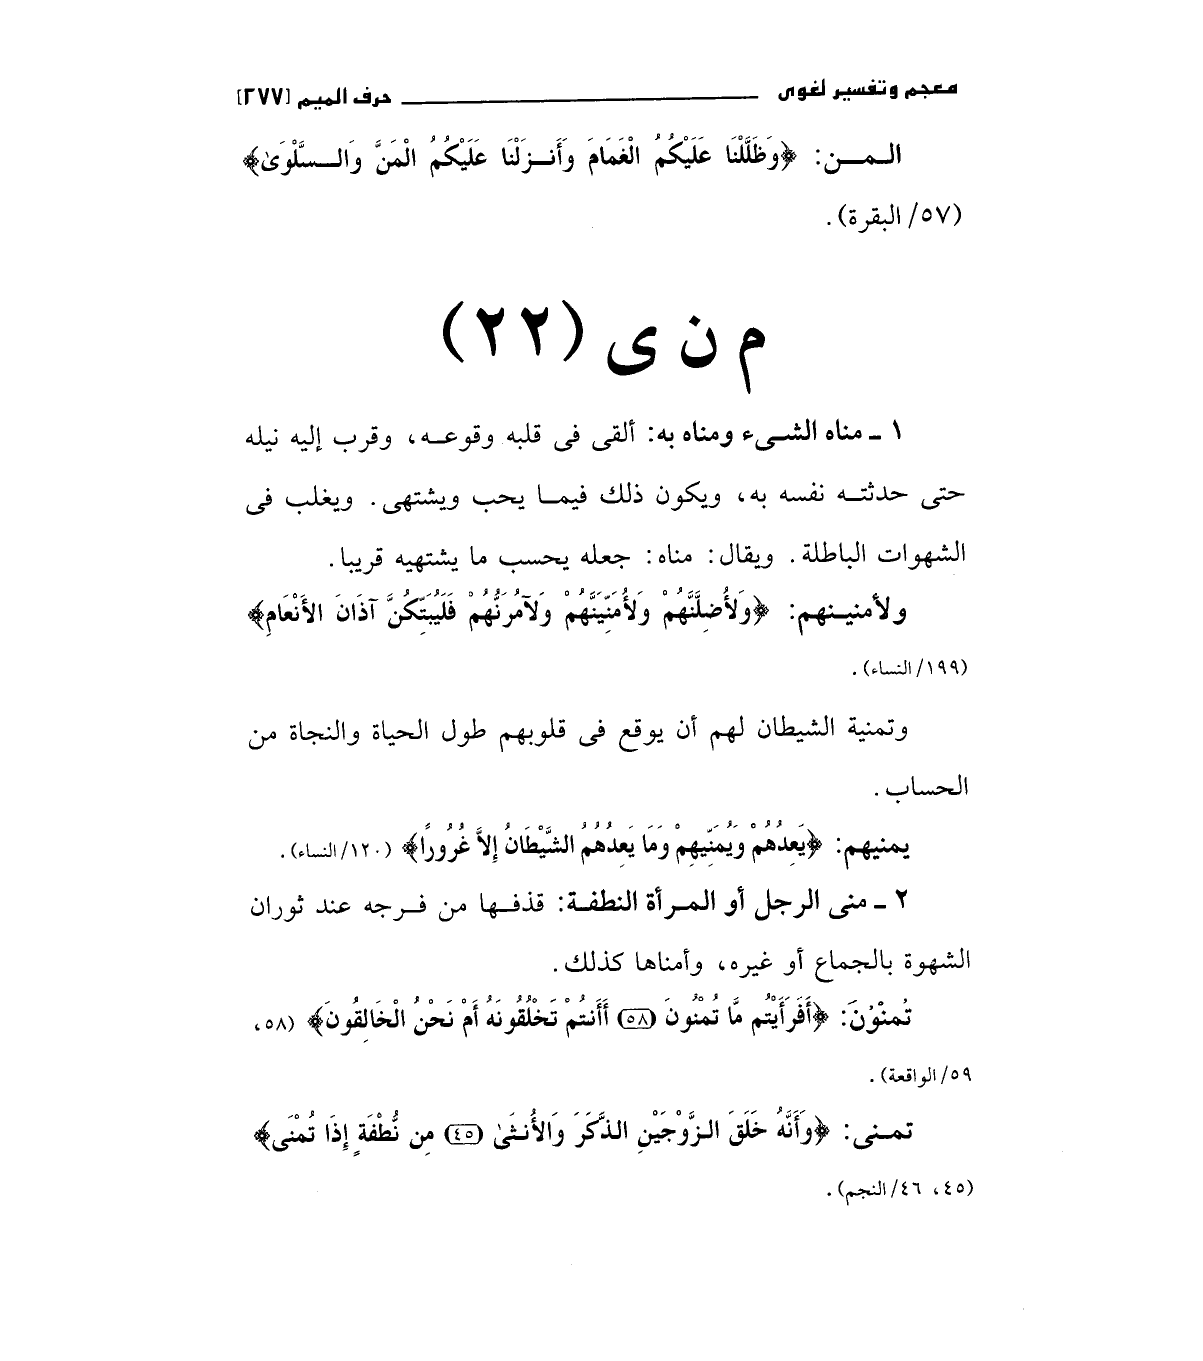 معجم وتفسير لغوى ــــــــــــــــ حرف الميم [٢٧٧]
المـــن: ﴿وَظَلَّلْنَا عَلَيْكُمُ الْغَمَامَ وَأَنــزَلْنَا عَلَيْكُمُ الْمَنَّ وَالــسَّلْوَىٰ﴾
(٥٧/ البقرة).
م ن ى (٢٢)
١ ـ مناه الشـىء ومناه به: ألقى فى قلبه وقوعـه، وقرب إليه نيله
حتى حدثتـه نفسه به، ويكون ذلك فيمـا يحب ويشتهى. ويغلب فى
الشهوات الباطلة. ويقال: مناه: جعله يحسب ما يشتهيه قريبا.
ولأمنيـنهم: ﴿وَلأُضِلَّنَّهُمْ وَلأُمَنِّيَنَّهُمْ وَلآمُرَنَّهُمْ فَلَيُبَتِّكُنَّ آذَانَ الأَنْعَامِ﴾
(١٩٩/ النساء).
وتمنية الشيطان لهم أن يوقع فى قلوبهم طول الحياة والنجاة من
الحساب.
يمنيهم: ﴿يَعِدُهُمْ وَيُمَنِّيهِمْ وَمَا يَعِدُهُمُ الشَّيْطَانُ إِلاَّ غُرُورًا﴾ (١٢٠/ النساء).
٢ ـ منى الرجل أو المـرأة النطفـة: قذفـها من فـرجه عند ثوران
الشهوة بالجماع أو غيره، وأمناها كذلك.
تُمنْوُنَ: ﴿أَفَرَأَيْتُم مَّا تُمْنُونَ (٥٨) أَأَنتُمْ تَخْلُقُونَهُ أَمْ نَحْنُ الْخَالِقُونَ﴾ (٥٨،
٥٩/ الواقعة).
تمـنى: ﴿وَأَنَّهُ خَلَقَ الـزَّوْجَيْنِ الذَّكَرَ وَالأُنثَىٰ (٤٥) مِن نُّطْفَةٍ إِذَا تُمْنَى﴾
(٤٥، ٤٦/ النجم).